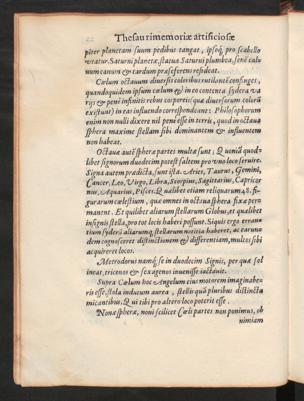 Thesauri memoriæ artificiosæ
piter planetam suum pedibus tangat, ipsoq́; pro scabello
utatur. Saturni planeta, status Saturni plumbea, senē caluum
canum & tardum præseferens resideat.
Cælum octauum diuersi coloribus rutilantē confinges,
quandoquidem ipsum cælum & in eo contenta sydera variis
& penè infinitis rebus corporeis (quæ diuersorum colorū
existunt) in eas influendo correspondeant: Philosophorum
enim non nulli dixere nil penè esse in terris, quod in octaua
sphæra maxime stellam sibi dominantem & influentem
non habeat.
Octauæ autē sphæræ partes multæ sunt, Quænid quodlibet
signorum duodecim potest saltem pro vno loco seruire.
Signa autem prædicta, sunt ista. Aries, Taurus, Gemini,
Cancer, Leo, Virgo, Libra, Scorpius, Sagittarius, Capricornus,
Aquarius, Pisces. Quælibet etiam reliquarum 48. figurarum
cælestium, quæ omnes in octaua sphæra fixæ permanent.
Et quælibet aliarum stellarum Globus, et quælibet
insignis stella, pro tot locis haberi possunt. Siquis ergo errantium
syderū aliarumq́; stellarum notitiā habuerit, ac earundem
cognosceret distinctionem & differentiam, multos sibi
acquireret locos.
Metrodorus namq́; se in duodecim Signis, per quæ sol
meat, tricenos & sexagenos inuenisse iactauit.
Supra Cælum hoc Angelum eius motorem imaginaberis
esse, stola indutum aurea, stellis quā pluribus distincta
micantibus, Qui tibi pro altero loco poterit esse.
Nonæ sphæræ, noni scilicet Cæli partes non ponimus, ob
nimiam